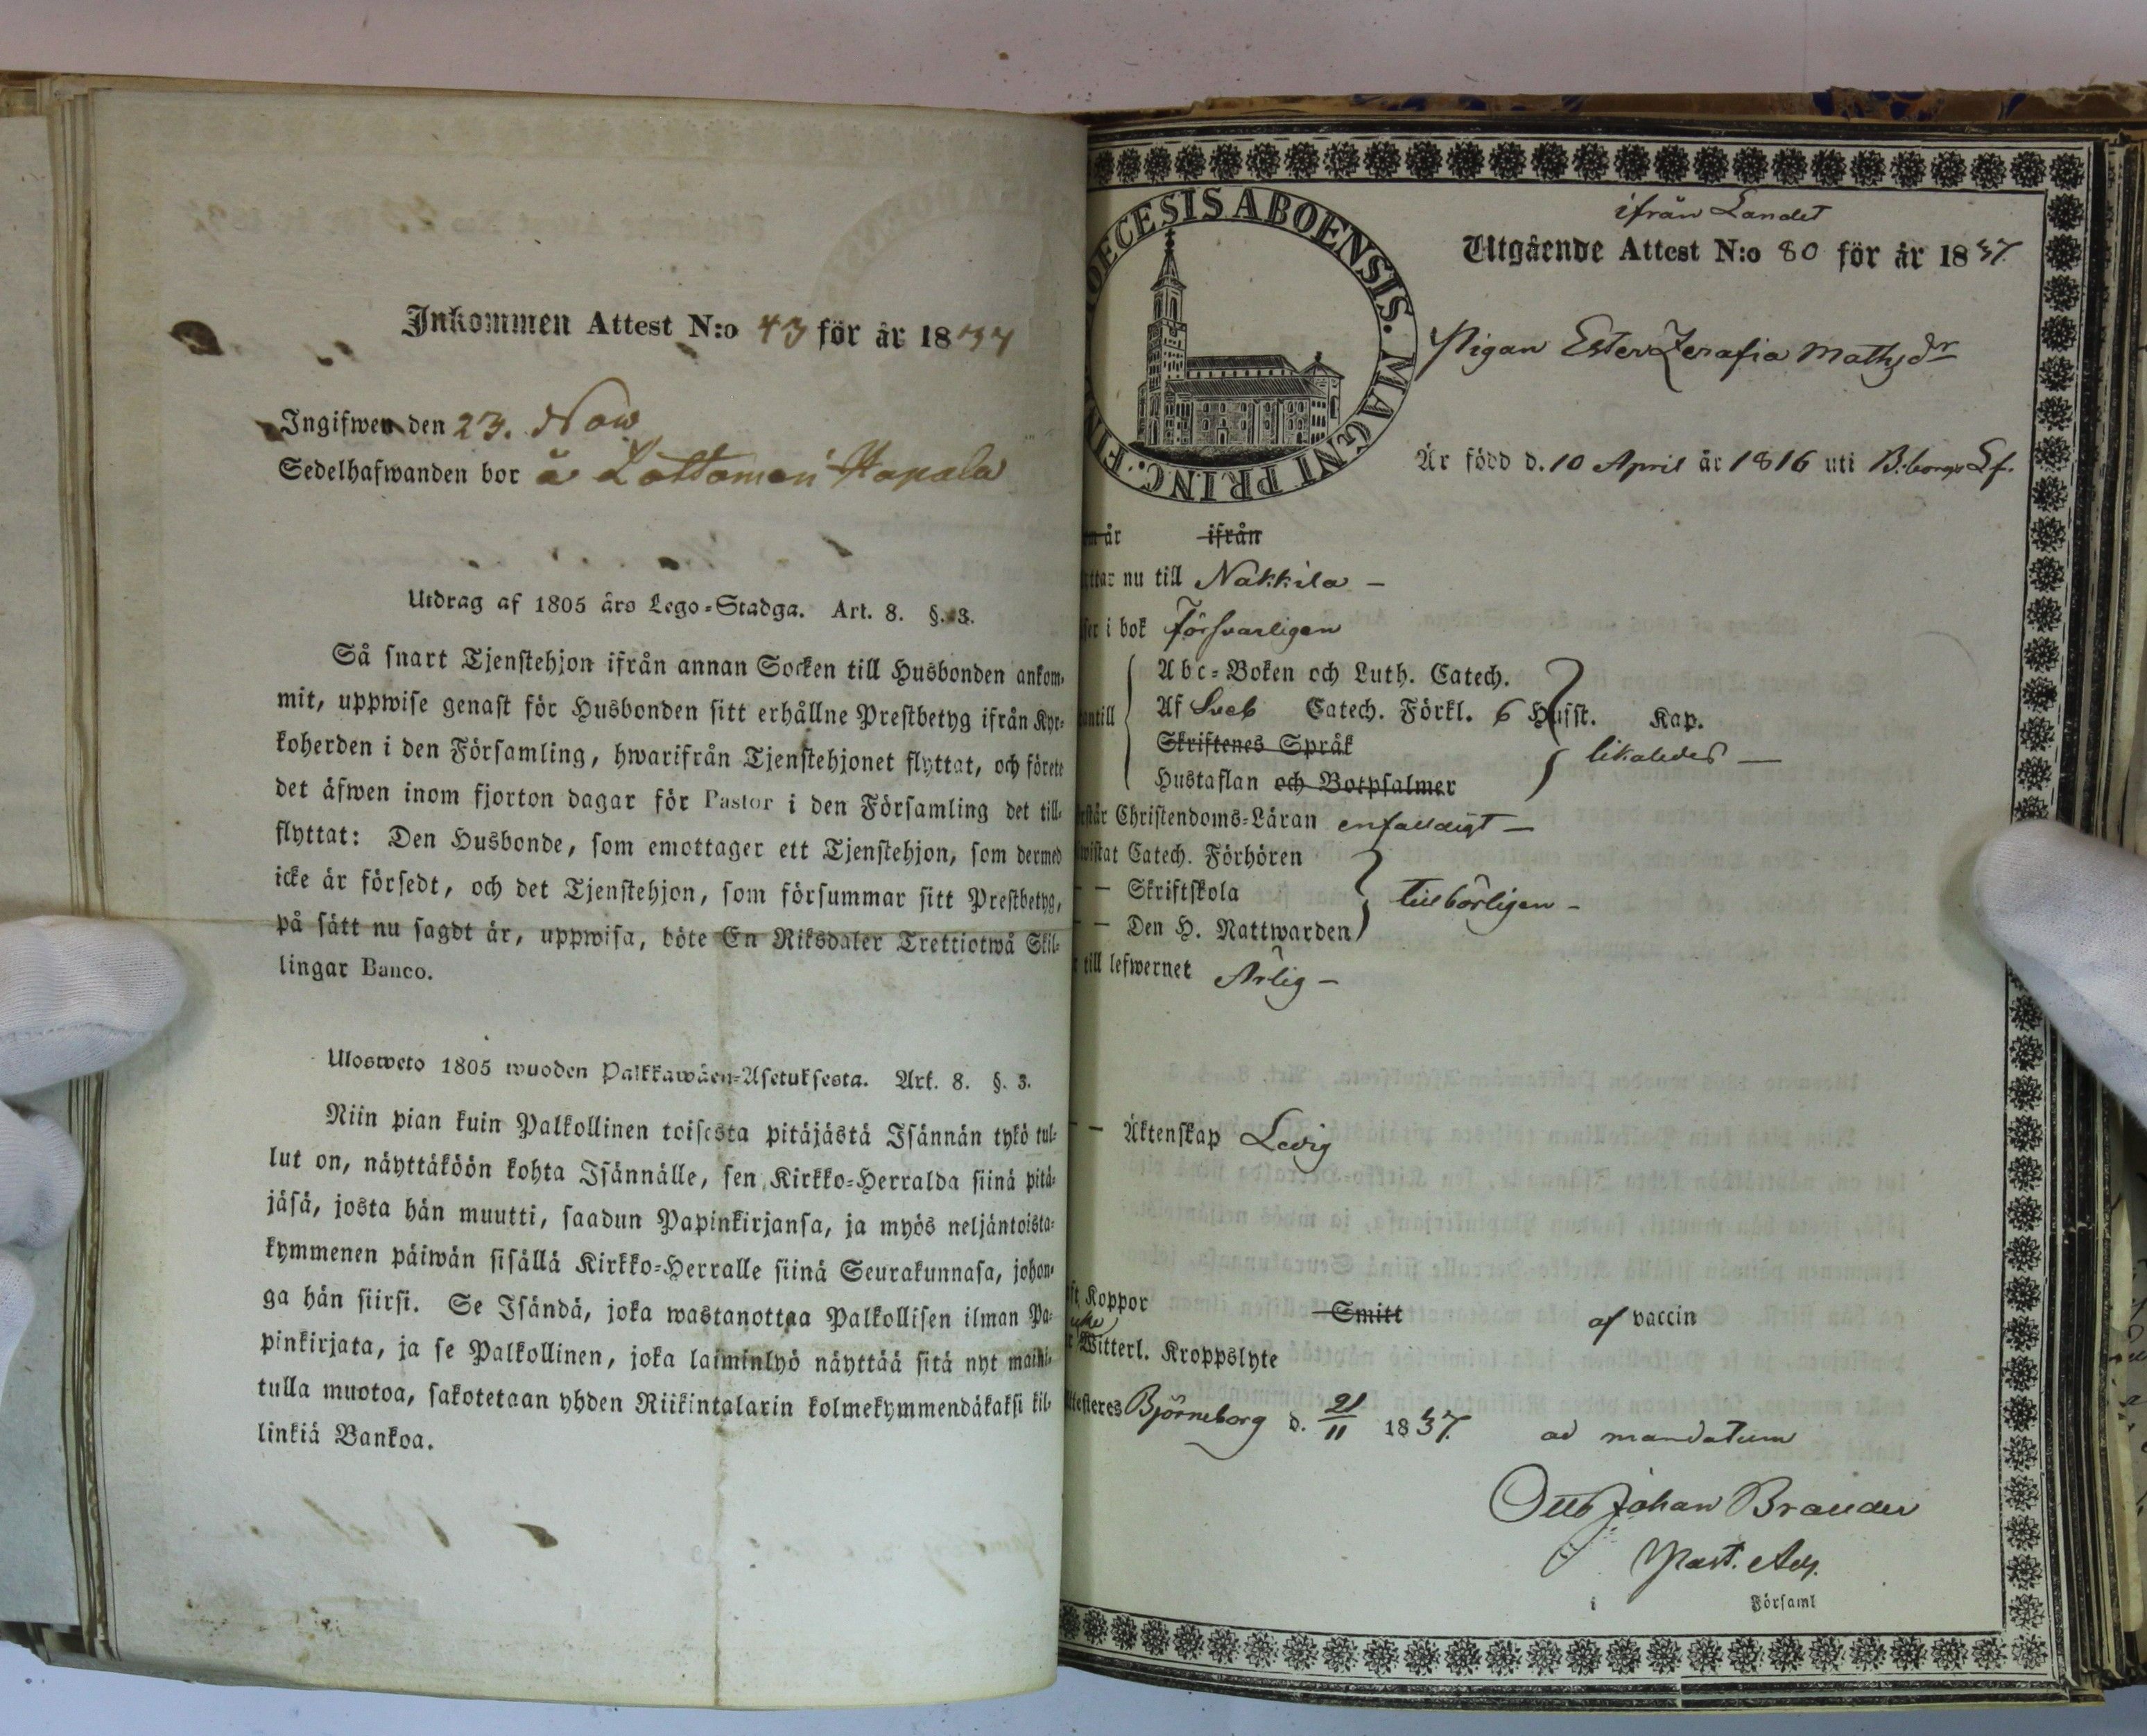 Inkommen Attest N:o 43 för år 1837
Ingifwen den 23. Nov
Sedelhafwanden bor å Lattomeri Hapala
Utdrag af 1805 års Lego-Stadga. Art. 8. §. 3.
Så snart Tjenstehjon ifrån annan Socken till Husbonden ankom-
mit, uppwise genast för Husbonden sitt erhållne Prestbetyg ifrån Kyr-
koherden i den Församling, hwarifrån Tjenstehjonet flyttat, och förete
det äfwen inom fjorton dagar för Pastor i den Församling det till-
flyttat: Den Husbonde, som emottager ett Tjenstehjon, som dermed
icke är försedt, och det Tjenstehjon, som försummar sitt Prestbetyg,
på sätt nu sagdt är, uppwisa, böte En Riksdaler Trettiotwå Skil-
lingar Banco.
Ulosweto 1805 wuoden Palkkawäen-Asetuksesta. Art. 8. §. 3.
Niin pian kuin Palkollinen toisesta pitäjästä Isännän tykö tul-
lut on, näyttäköön kohta Isännälle, sen Kirkko-Herralda siinä pitä-
jäsä, josta hän muutti, saadun Papinkirjansa, ja myös neljäntoista-
kymmenen päiwän sisällä Kirkko-Herralle siinä Seurakunnasa, johon-
ga hän siirsi. Se Isändä, joka wastanottaa Palkollisen ilman Pa-
pinkirjata, ja se Palkollinen, joka laiminlyö näyttää sitä nyt maini-
tulla muotoa, sakotetaan yhden Riikintalarin kolmekymmendäkaksi kil-
linkiä Bankoa.
DIOECESIS ABOENSIS. MAGNI PRINC. FIN
ifrån Landet
Utgående Attest N:o 80 för år 1837.
Pigan Ester Zerafia Mathsdr
Är född d. 10 April år 1816 uti B:borgs Lf.
år ifrån
ttar nu till Nakkila –
ser i bok Försvarligen
Abc-Boken och Luth. Catech.
antill Af Sveb Catech. Förkl. 6 Husst. Kap.
Skriftenes Språk
likaledes –
Hustaflan och Botpsalmer
rstår Christendoms-Läran enfaldigt –
wistat Catech. Förhören
– – Skriftskola
tillbörligen –
– – Den H. Nattwarden
r till lefwernet Ärlig –
– – Äktenskap Ledig
ft Koppor Smitt af vaccin
icke
r Witterl. Kroppslyte
ttesteres Björneborg d. 21/11 1837.
ad mandatum
Otto Johan Brander
Past. Adj.
i Församl